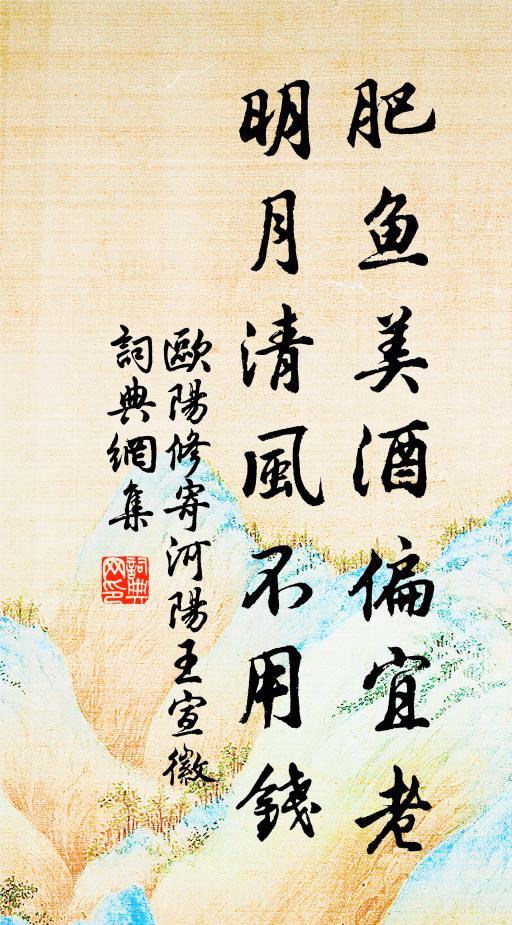 肥鱼美酒偏宜老
明月清風不用錢
歐陽修寄河陽王宣徽
詞典網集
詞典
网印